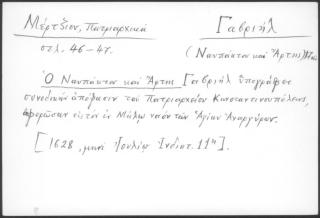 Μέρτζιον, Πατριαρχικά
Γαβριήλ
σελ. 46-47.
(Ναυπάκτου καὶ Ἄρτης)
Ὁ Ναυπάκτου καὶ Ἄρτης Γαβριὴλ ὑπογράφει
συνοδικὴν ἀπόφασιν τοῦ Πατριαρχείου Κωνσταντινουπόλεως,
ἀφορῶσαν εἰς τὸν ἐν Μήλῳ ναὸν τῶν Ἁγίων Ἀναργύρων.
[1628, μηνὶ Ἰουλίῳ Ἰνδικτ. 11η].